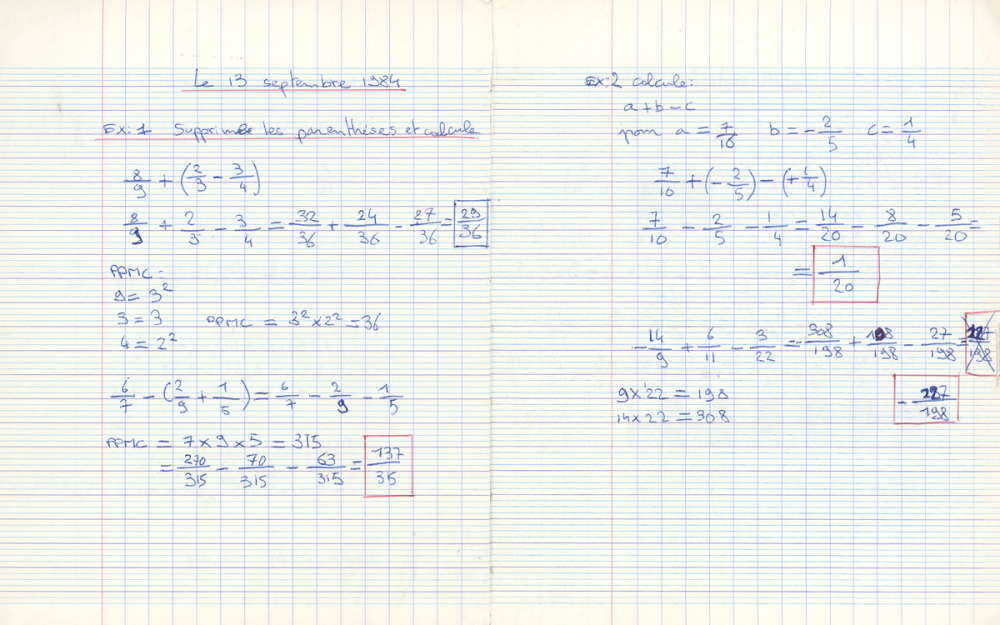 Le 13 septembre 1984
Ex: 1 Supprimer les parenthèses et calcule
8/9 + (2/3 - 3/4)
8/9 + 2/3 - 3/4 = 32/36 + 24/36 - 27/36 = 29/36
PPMC =
9 = 3²
3 = 3 PPMC = 3² × 2² = 36
4 = 2²
6/7 - (2/9 + 1/5) = 6/7 - 2/9 - 1/5
PPMC = 7 × 9 × 5 = 315
= 270/315 - 70/315 - 63/315 = 137/315
Ex: 2 calcule:
a + b - c
pour a = 7/10 b = - 2/5 c = 1/4
7/10 + (- 2/5) - (+ 1/4)
7/10 - 2/5 - 1/4 = 14/20 - 8/20 - 5/20 =
= 1/20
- 14/9 + 6/11 - 3/22 = - 308/198 + 108/198 - 27/198 =
9 × 22 = 198
14 × 22 = 308
- 227/198